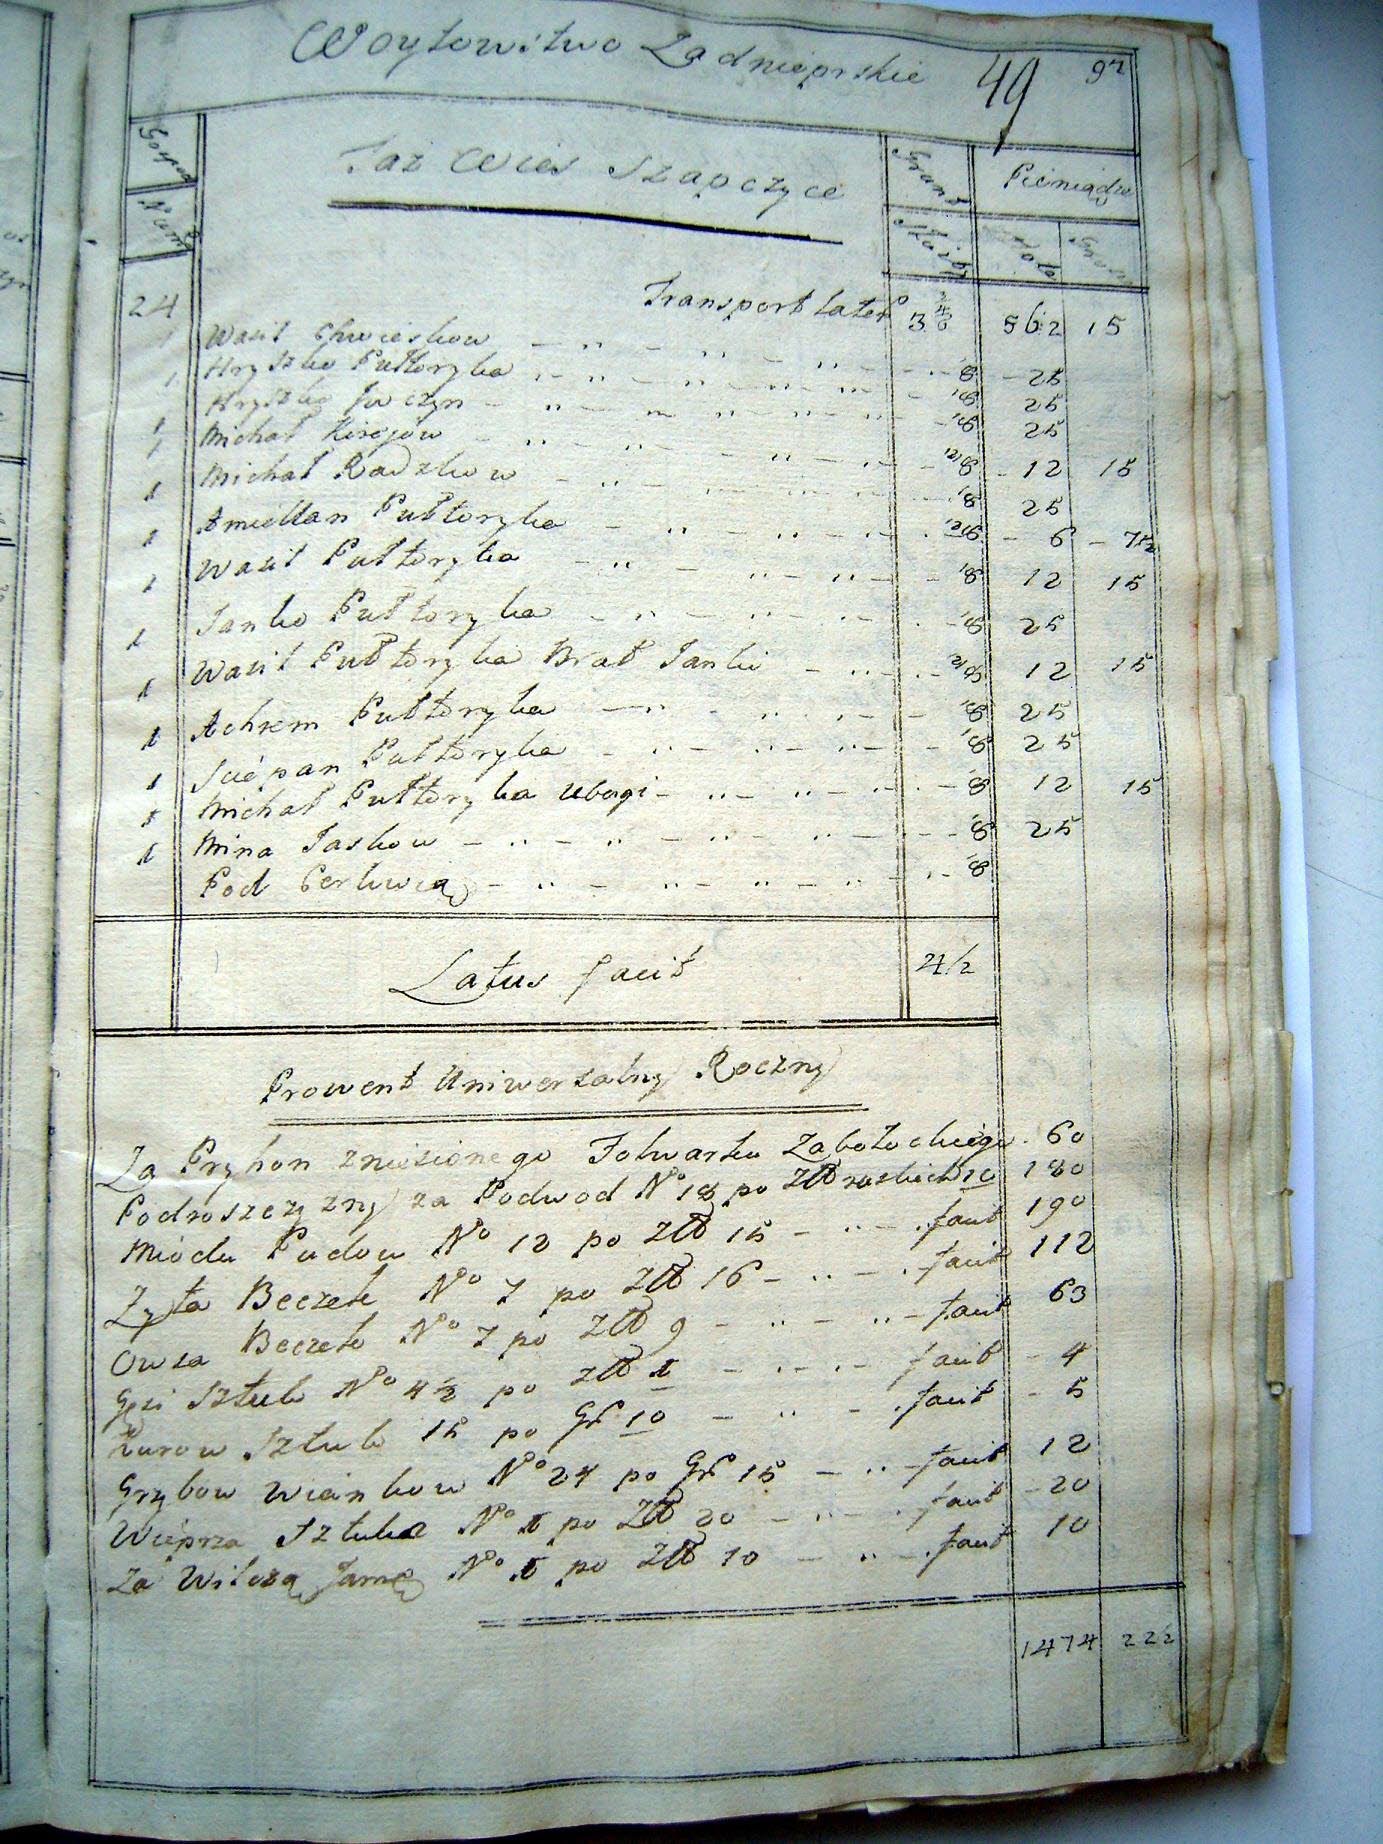 Woytowstwo Zadnieprskie 49 92
Gospod
Num
Taż Wieś Szapczyce
Grunt
Służby
Pieniądze
Złote
Grosze
24 Transport Lateř 3 562 15
1 Wasil Chwieskow 1/8 25
1 Hryszko Pułtorzyka 1/8 25
Hryszko 1/8 25
1 Michał Kirejow 1/8 12 15
1 Michał Raczkow 1/8 25
1 Amiellan Pułtorzyka 6 7 1/2
1 Wasil Pułtorzyka 1/8 12 15
1 Janko Pułtorzyka 1/8 25
1 Wasil Pułtorzyka Brat Janki 12 15
1 Achrem Pułtorzyka 1/8 25
1 Sciepan Pułtorzyka 1/8 25
1 Michał Pułtorzyka Ubogi 1/8 12 15
1 Mina Jaskow 1/8 25
Pod Cerkwią 1/8
Latus facit 4/2
Prowent Uniwersalny Roczny
Za Pryhon zniesionego Folwarku Zabołockiego 60
Podroszczyzny za Podwod No 18 po Złł ruskich 10 180
Miodu Pudow No 12 po Złł 15 facit 190
Żyta Beczek No 7 po Złł 16 facit 112
Owsa Beczek No 7 po Złł 9 facit 63
Gęsi Sztuk No 4 1/2 po Złł 1 facit 4
Kurow Sztuk 15 po Gr 10 facit 5
Grzybow Wiankow No 24 po Gr 15 facit 12
Wieprza Sztuka No 1 po Złł 20 facit 20
Za Wilczą Jamę No 1 po Złł 10 facit 10
1474 22 1/2